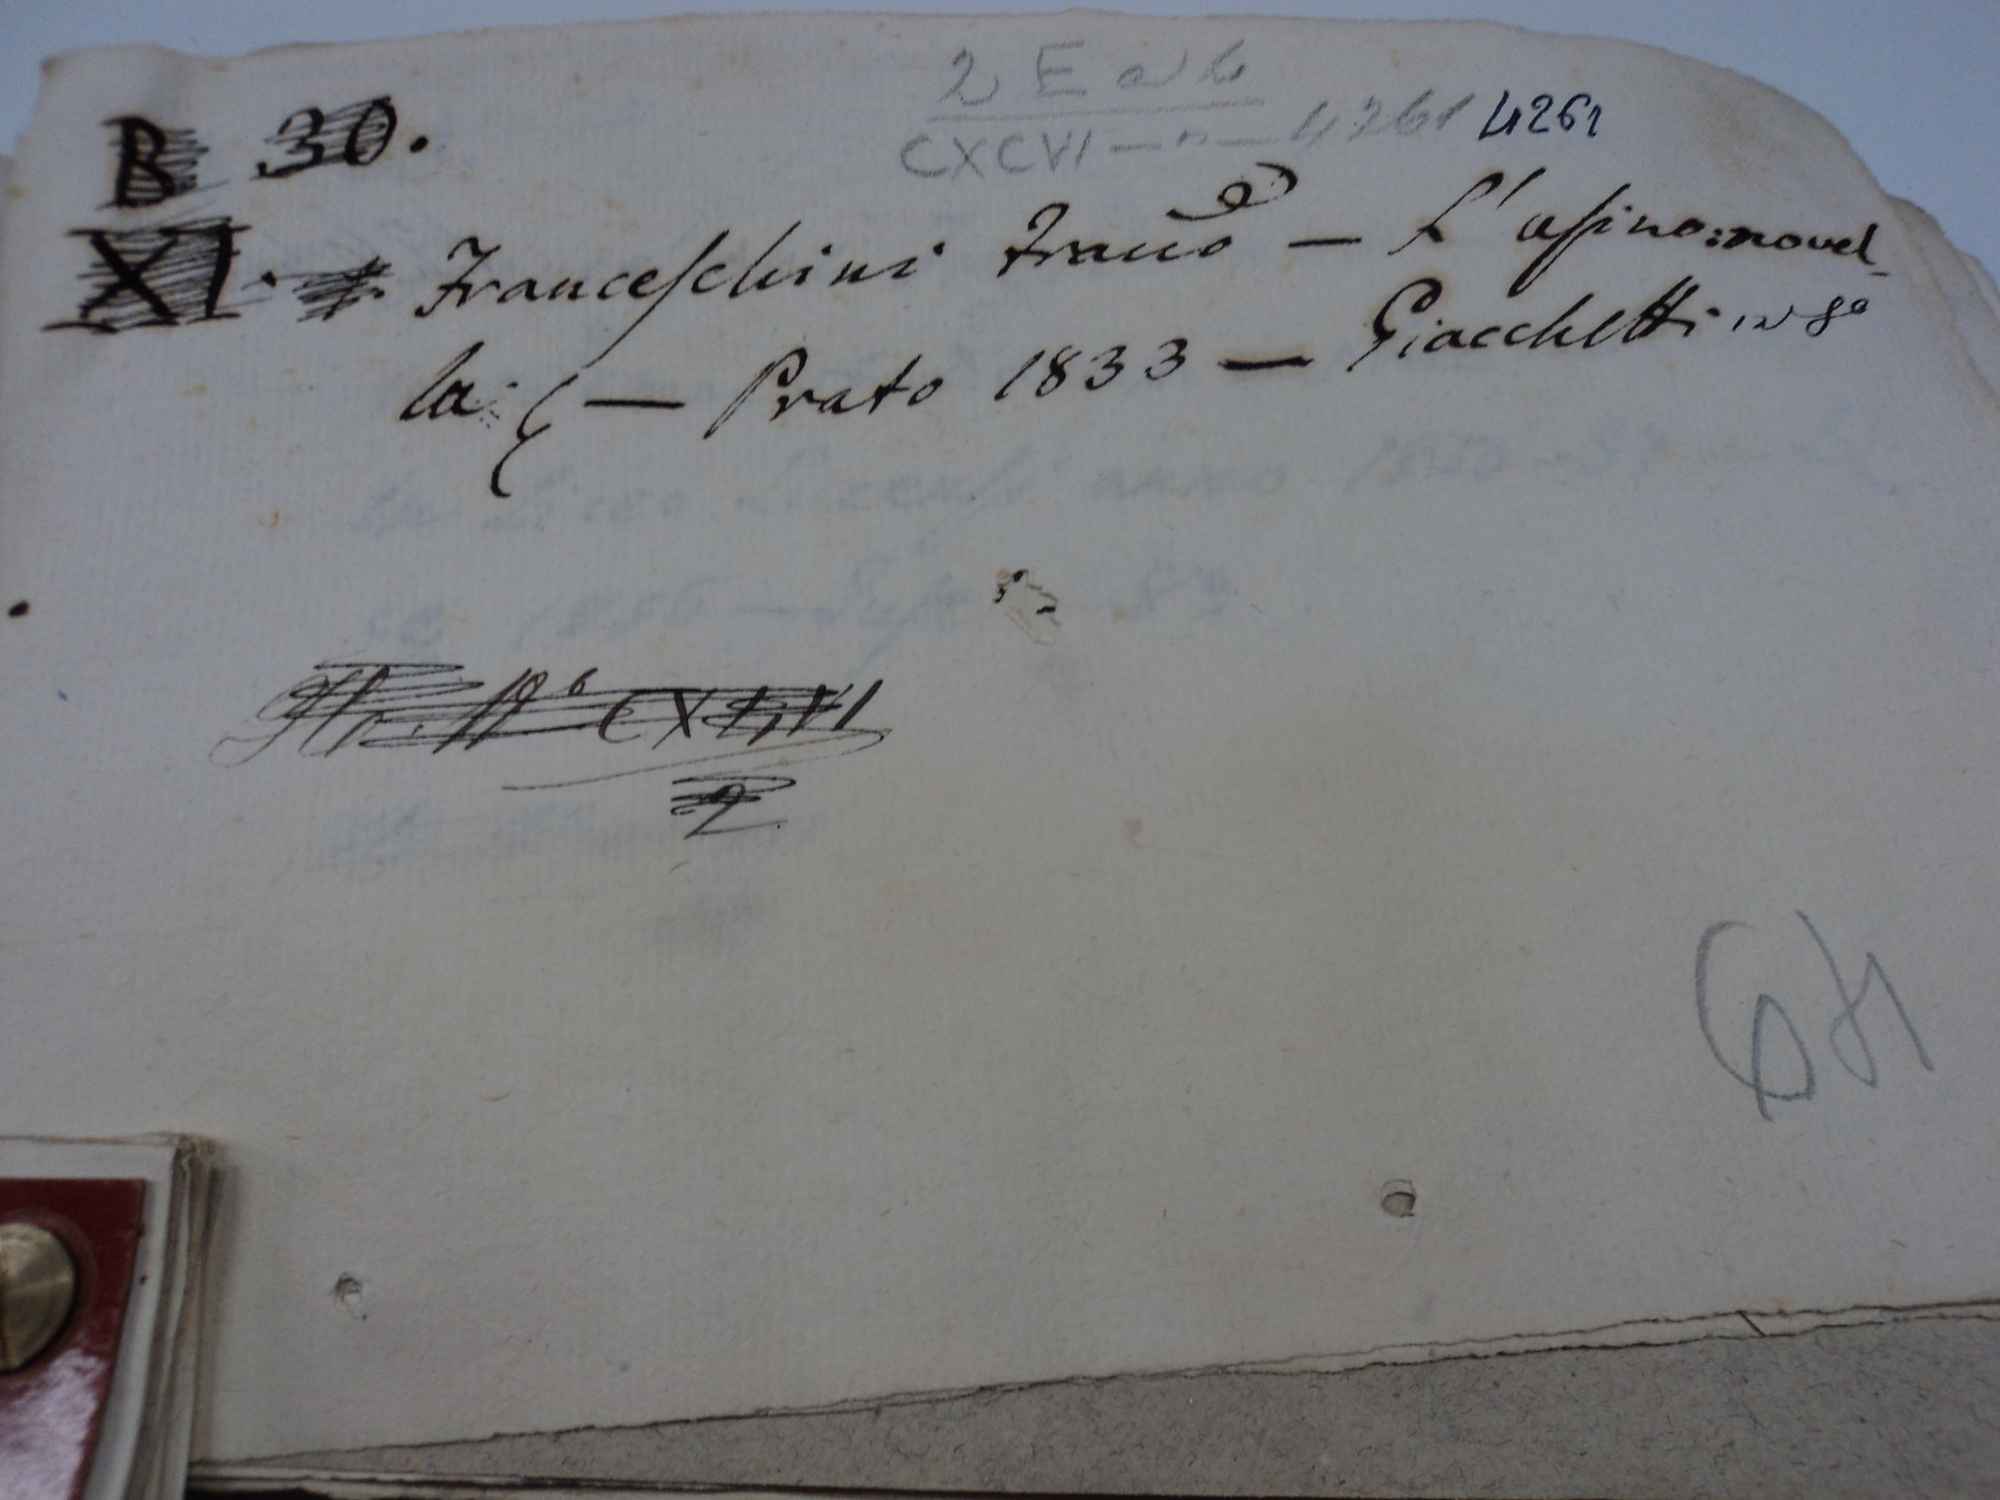 2 E a b
CXCVI — n — 4261 4261
B 30.
XI. Franceschini Franc.o — L'asino: novel-
la; — Prato 1833 — Giacchetti in 8o
2